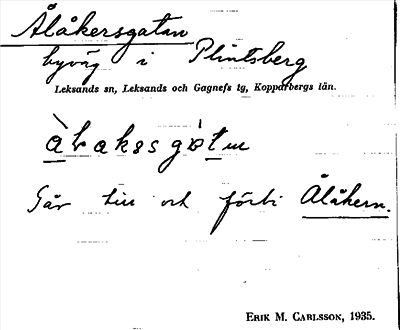 Ålåkersgatan
byväg i Plintsberg
Leksands sn, Leksands och Gagnefs tg, Kopparbergs län.
Går till och förbi Ålåkern.
ERIK M. CARLSSON, 1935.